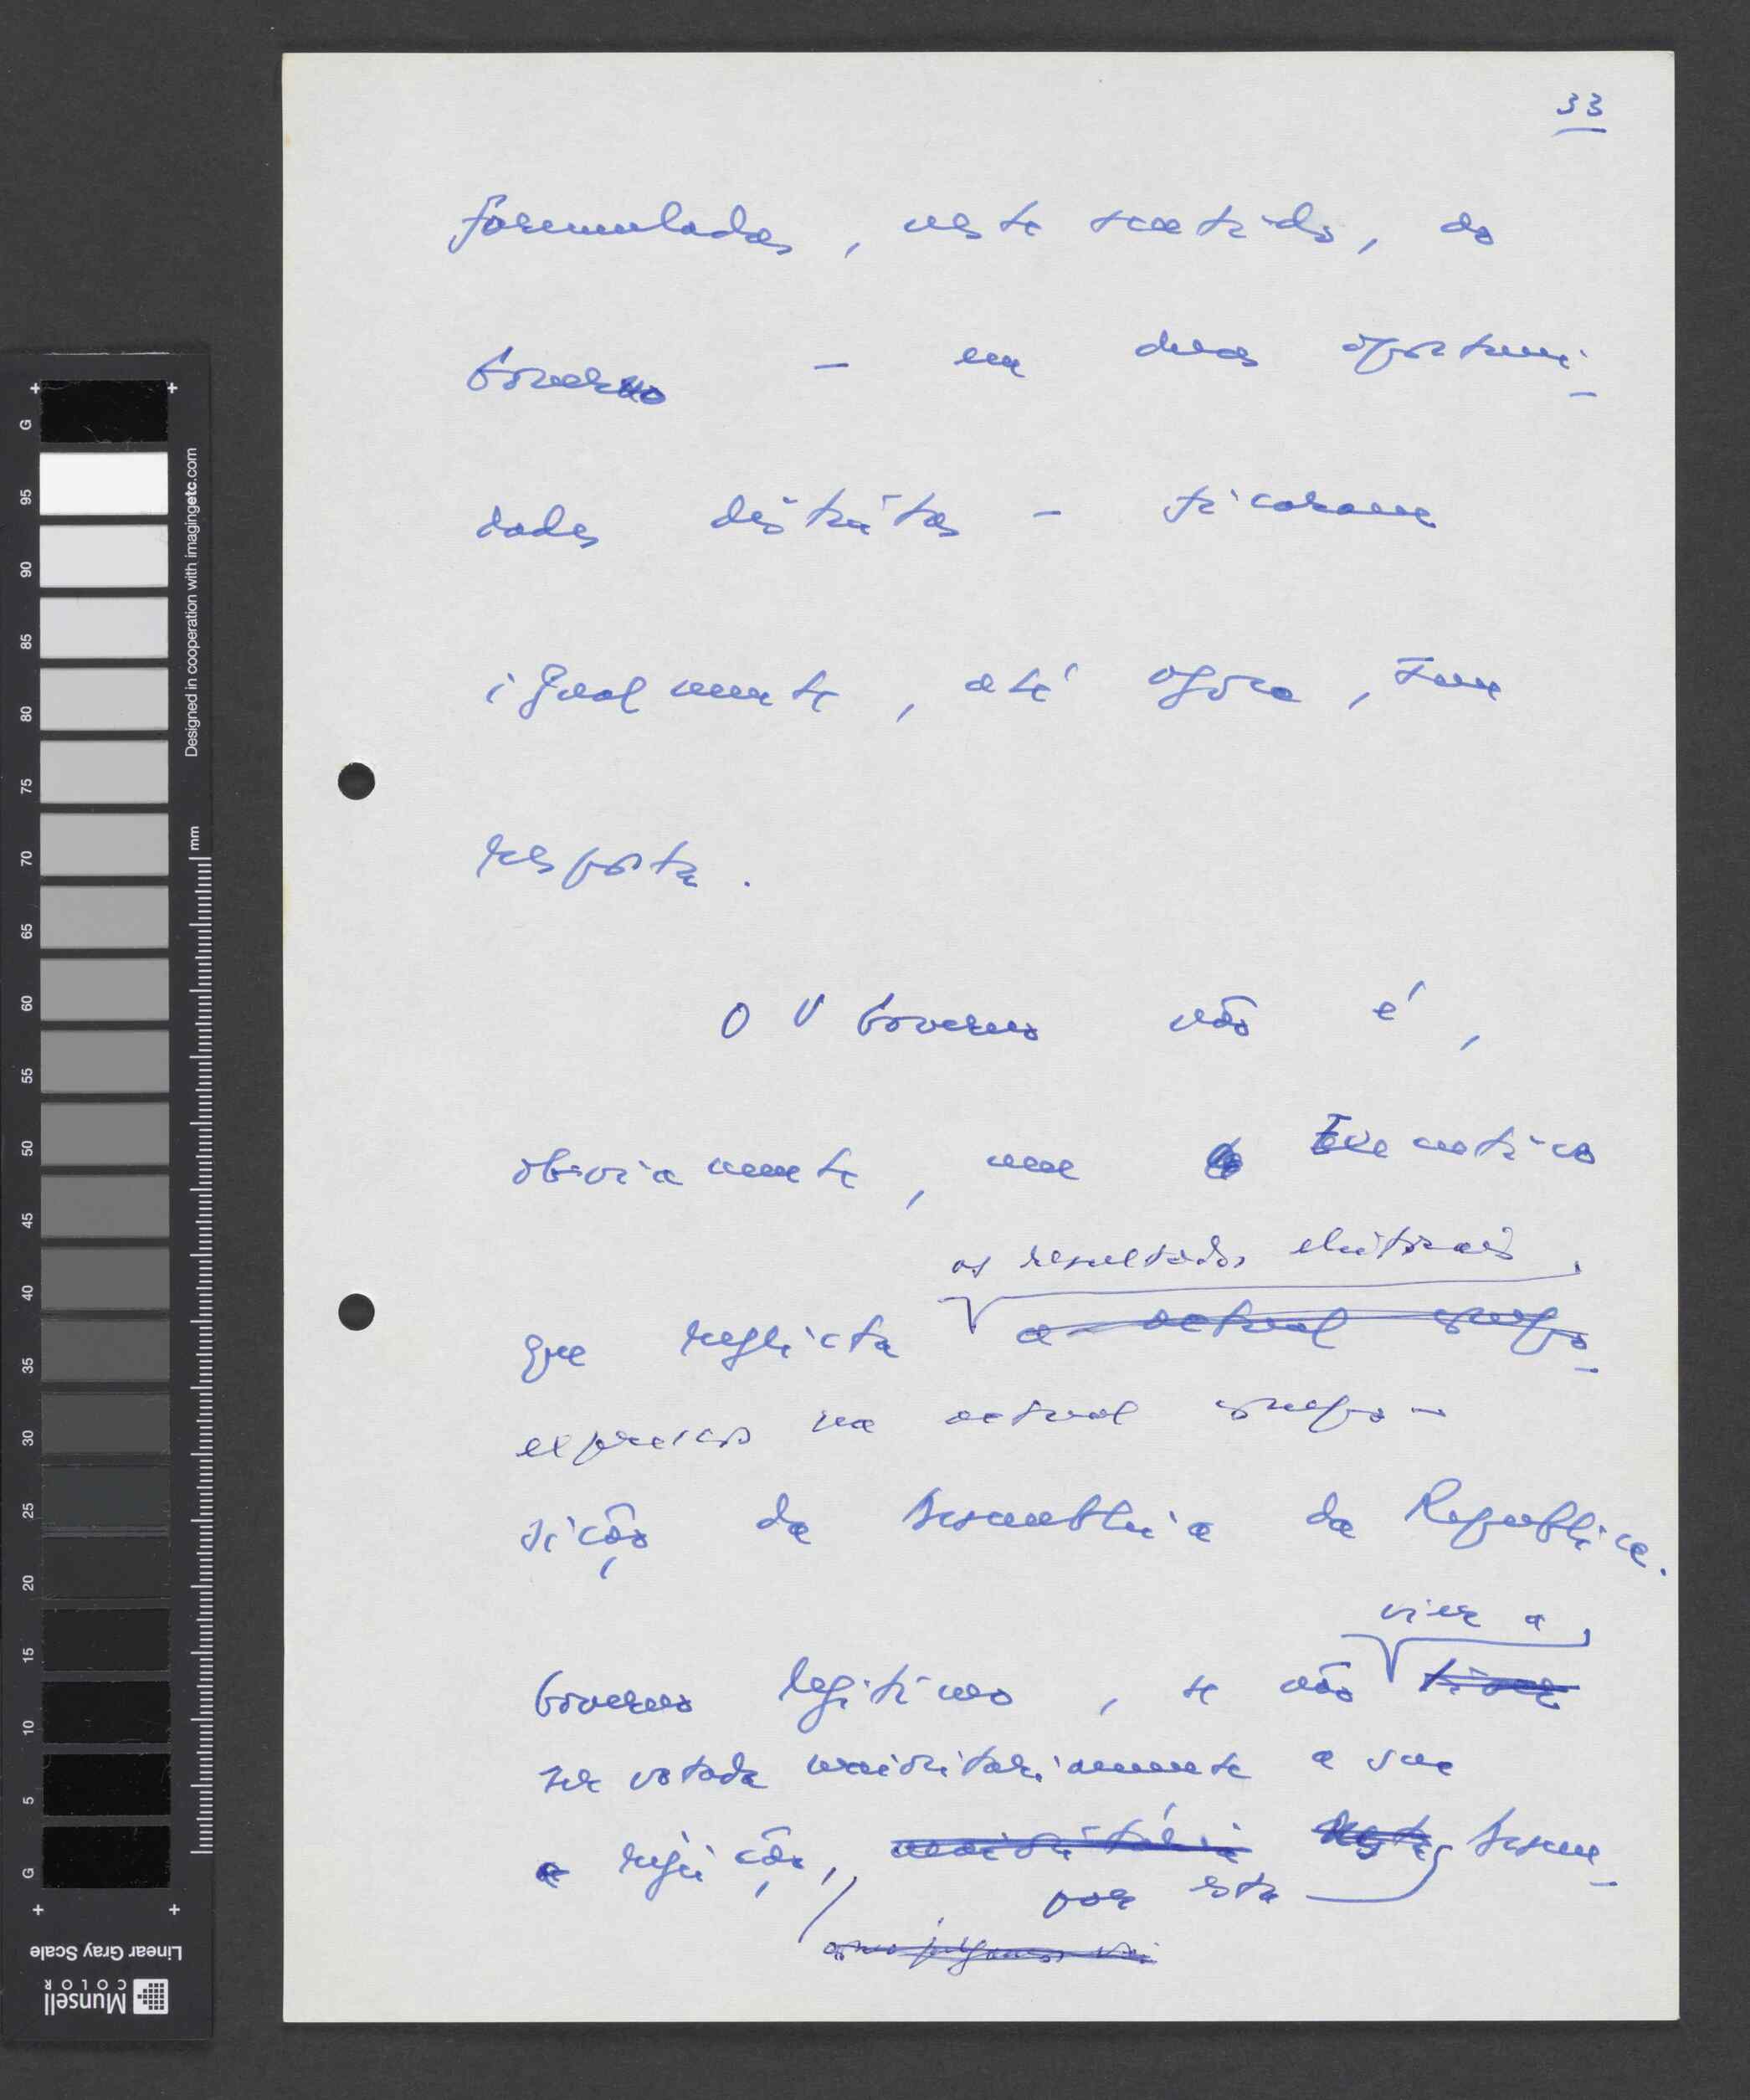 33
formuladas, neste sentido, ao
Governo – em duas oportuni-
dades distintas – ficaram
igualmente, até agora, sem
resposta.
O V Governo não é,
obviamente, um Executivo
os resultados eleitorais
que reflicta a actual compo-
expressos na actual compo-
sição da Assembleia da República.
vier a
Governo legítimo, se não tiver
ser votada maioritariamente a sua
a rejeição, maioritária nesta Assem-
por esta
como julgamos
G 95 90 85 80 75 70 65 60 55 50 45 40 35 30 25 20 15 10 5 G
mm
Designed in cooperation with imagingetc.com
Linear Gray Scale
Munsell
COLOR